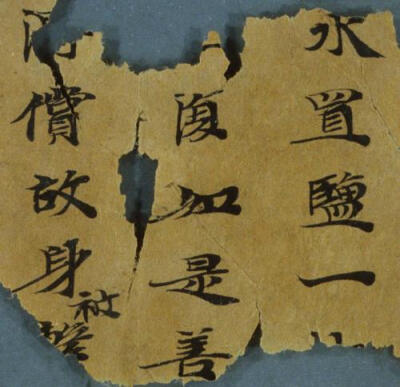 水置鹽一
復如是善
償故身被繫